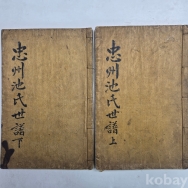 忠州池氏世譜 上
忠州池氏世譜 下
kobay